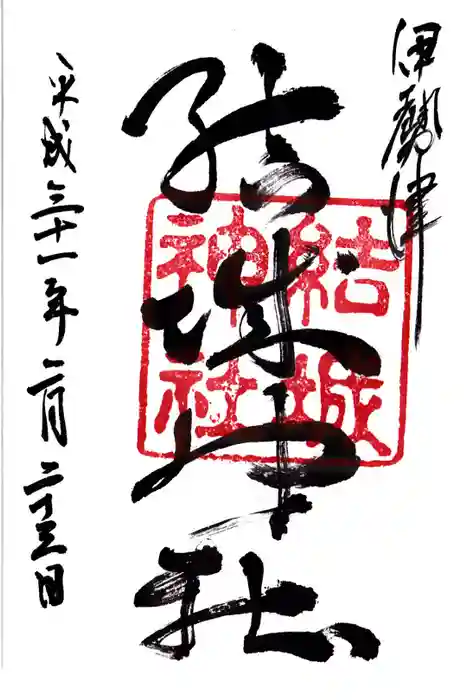 伊勢津
結城神社
結城
神社
平成三十一年二月二十三日